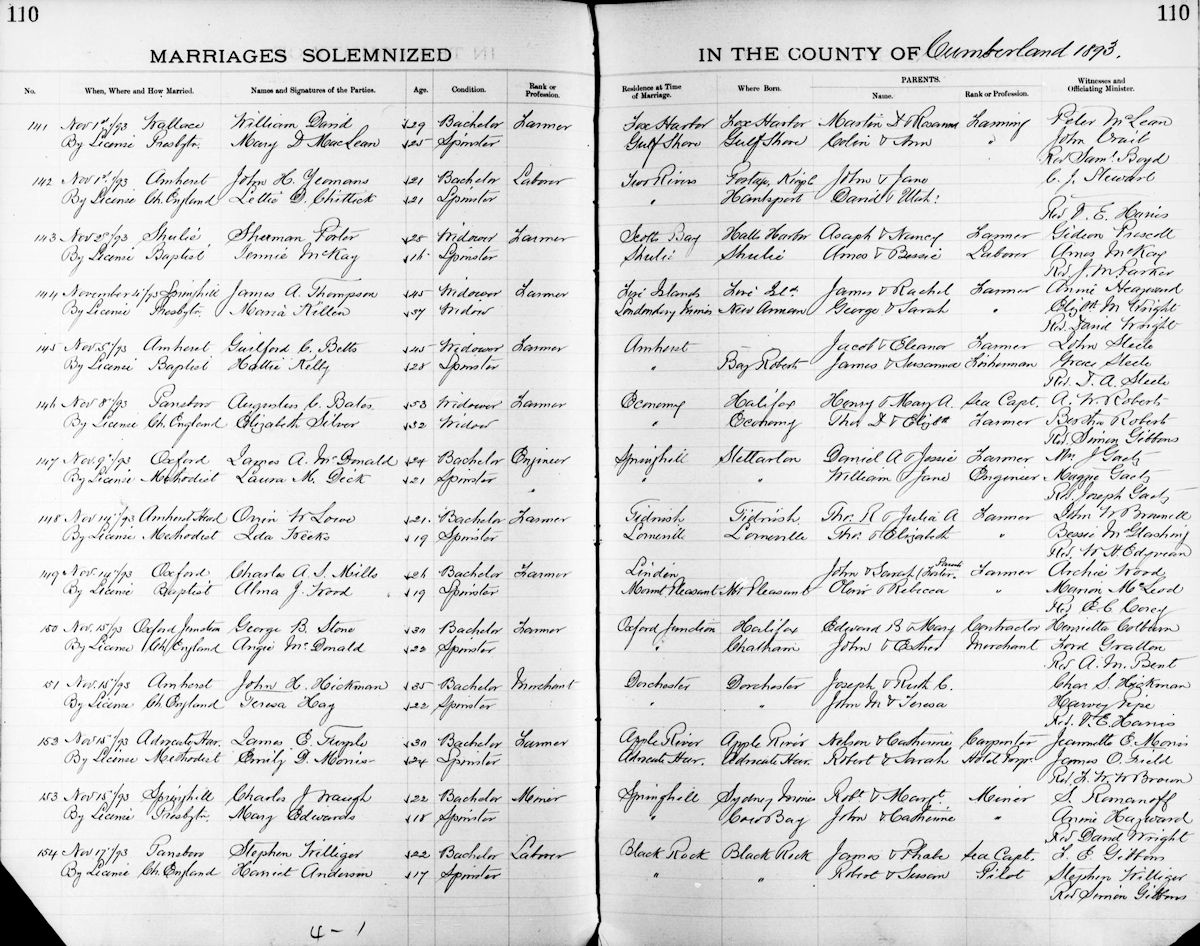 110 110
MARRIAGES SOLEMNIZED IN THE COUNTY OF Cumberland 1893.
No. When, Where and How Married. Names and Signatures of the Parties. Age. Condition. Rank or Profession. Residence at Time of Marriage. Where Born. PARENTS. Name. Rank or Profession. Witnesses and Officiating Minister.
141 Nov 1st/93 Wallace William David 29 Bachelor Farmer Fox Harbor Fox Harbor Martin D & Rosanna Farming Peter McLean
By License Presbytn. Mary D MacLean 25 Spinster Gulf Shore Gulf Shore Colin & Ann " John Vrail
Rev Saml. Boyd
142 Nov 1st/93 Amherst John H. Yeomans 21 Bachelor Laborer Two Rivers John & Jane C. J. Stewart
By License Ch. England Lettie D. Chittick 21 Spinster " Hantsport David &
Rev V. E. Harris
143 Nov 2/93 Shulie Sherman Porter 28 Widower Farmer Scotts Bay Halls Harbor Asaph & Nancy Farmer Gideon Prescott
By License Baptist Jennie McKay 16 Spinster Shulie Shulie Amos & Bessie Laborer Amos McKay
Rev J. M. Parker
144 November 4/93 Springhill James A. Thompson 45 Widower Farmer Five Islands Five Isld. James & Rachel Farmer Annie Heyward
By License Presbytn. Maria Killen 37 Widow Londonderry Mines New Annan George & Sarah " Elizbth M Wright
Rev David Wright
145 Nov 5/93 Amherst Guilford C. Betts 45 Widower Farmer Amherst Jacob & Eleanor Farmer John Steele
By License Baptist Hattie Kelly 28 Spinster " Bay Roberts James & Susannah Fisherman Grace Steele
Rev. D. A. Steele
146 Nov 8/93 Parrsboro Augustus C. Bates 53 Widower Farmer Economy Halifax Henry & Mary A. Sea Capt. A. W. Roberts
By License Ch. England Elizabeth Silver 32 Widow " Economy Thos D & Elizbth Farmer Bertha Roberts
Rev. Simon Gibbons
147 Nov. 9/93 Oxford James A. McDonald 24 Bachelor Engineer Springhill Stellarton Daniel A & Jessie Farmer Mrs J Gaetz
By License Methodist Laura M. Dick 21 Spinster " " " William & Jane Engineer Maggie Gaetz
Rev Joseph Gaetz
148 Nov 14/93 Amherst Head Orrin W Lowe 21. Bachelor Farmer Tidnish Tidnish Tho. R & Julia A Farmer John W Brownell
By License Methodist Ida Weeks 19 Spinster Lorneville Lorneville Tho. & Elizabeth " Bessie McGlashing
Rev. W H Edyvean
149 Nov. 14/93 Oxford Charles A. S. Mills 26 Bachelor Farmer Linden John & Sarah (Foster Parents Farmer Archie Wood
By License Baptist Alma J. Wood 19 Spinster Mount Pleasant Mt Pleasant Oliver & Rebecca " Marion McLeod
Rev E. C. Corey
150 Nov. 15/93 Oxford Junction George B. Stone 30 Bachelor Farmer Oxford Junction Halifax Edward B & Mary Contractor Henrietta Colburn
By License Ch. England Angie McDonald 23 Spinster " Chatham John & Esther Merchant Ford Gratton
Rev A. M. Bent
151 Nov. 15/93 Amherst John H. Hickman 35 Bachelor Merchant Dorchester Dorchester Joseph & Ruth C. Chas S. Hickman
By License Ch. England Teresa Hay 22 Spinster " " John M & Teresa Harvey Pipe
Rev. V. E. Harris
152 Nov 15/93 Advocate Har. James E. Fupple 30 Bachelor Farmer Apple River Apple River Nelson & Catherine Carpenter Jeannette E. Morris
By License Methodist Emily D Morris 24 Spinster Advocate Har. Advocate Har. Robert & Sarah Hotel Propr. James O. Field
Rev F. W. W Brown
153 Nov 15/93 Springhill Charles J Waugh 22 Bachelor Miner Springhill Sydney Mines Robt & Margt. Miner S. Romanoff
By License Presbytn. Mary Edwards 18 Spinster " Cow Bay John & Catherine " Annie Hayward
Rev David Wright
154 Nov 17/93 Parrsboro Stephen Williger 22 Bachelor Laborer Black Rock Black Rock James & Phebe Sea Capt. F. E Gibbons
By License Ch. England Harriet Anderson 17 Spinster " " Robert & Susan Pilot Stephen Williger
Rev Simon Gibbons
4-1